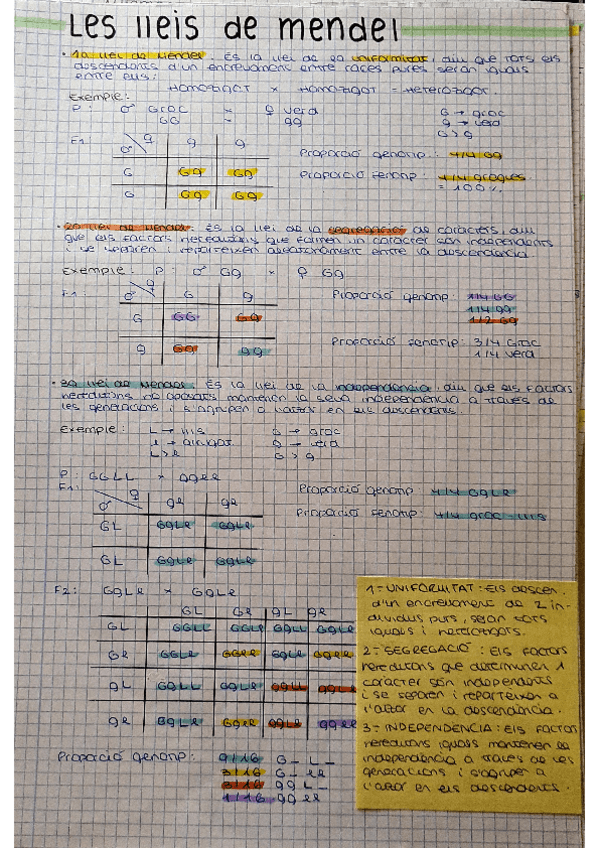 Les lleis de mendel
· 1a llei de Mendel: És la llei de la uniformitat, diu que tots els
descendents d'un entrecreuament entre races pures seran iguals
entre ells:
Homozigot x Homozigot = Heterozigot.
Exemple:
P: ♂ Groc x ♀ verd G → groc
GG gg g → verd
G > g
F1: ♂ g g g Proporció genotip: 4/4 Gg
G Gg Gg Proporció fenotip: 4/4 grogues
G Gg Gg = 100%
· 2a llei de Mendel: És la llei de la segregació de caràcters, diu
que els factors hereditaris que formen un caràcter són independents
i se separen i reparteixen aleatoriament entre la descendència
Exemple: P: ♂ Gg x ♀ Gg
F1: ♂ g G g Proporció genotip: 1/4 GG
G GG Gg 1/4 gg
1/2 Gg
g Gg gg Proporció fenotip: 3/4 Groc
1/4 verd
· 3a llei de Mendel: És la llei de la independència, diu que els factors
hereditaris no mantenen la seva independència a través de
les generacions i s'agrupen a l'atzar en els descendents.
Exemple: L → llis G → groc
l → arrugat g → verd
L > l G > g
P: GGLL x ggll
F1: ♂ g gl gl Proporció genotip 4/4 GgLl
GL GgLl GgLl Proporció fenotip: 4/4 groc llis
GL GgLl GgLl
F2: GgLl x GgLl
GL Gl gL gl
GL GGLL GGLl GgLL GgLl
Gl GGLl GGll GgLl Ggll
gL GgLL GgLl ggLL ggLl
gl GgLl Ggll ggLl ggll
Proporció genotip: 9/16 G_ L_
3/16 G_ ll
3/16 gg L_
1/16 gg ll
1- UNIFORMITAT: Els descen.
d'un entrecreuament de 2 in-
dividus purs, seran tots
iguals i heterozigots.
2- SEGREGACIÓ: Els factors
hereditaris que determinen 1
caràcter són independents
i se separen i reparteixen a
l'atzar en la descendència.
3- INDEPENDÈNCIA: Els factors
hereditaris iguals mantenen la
independència a través de les
generacions i s'agrupen a
l'atzar en els descendents.